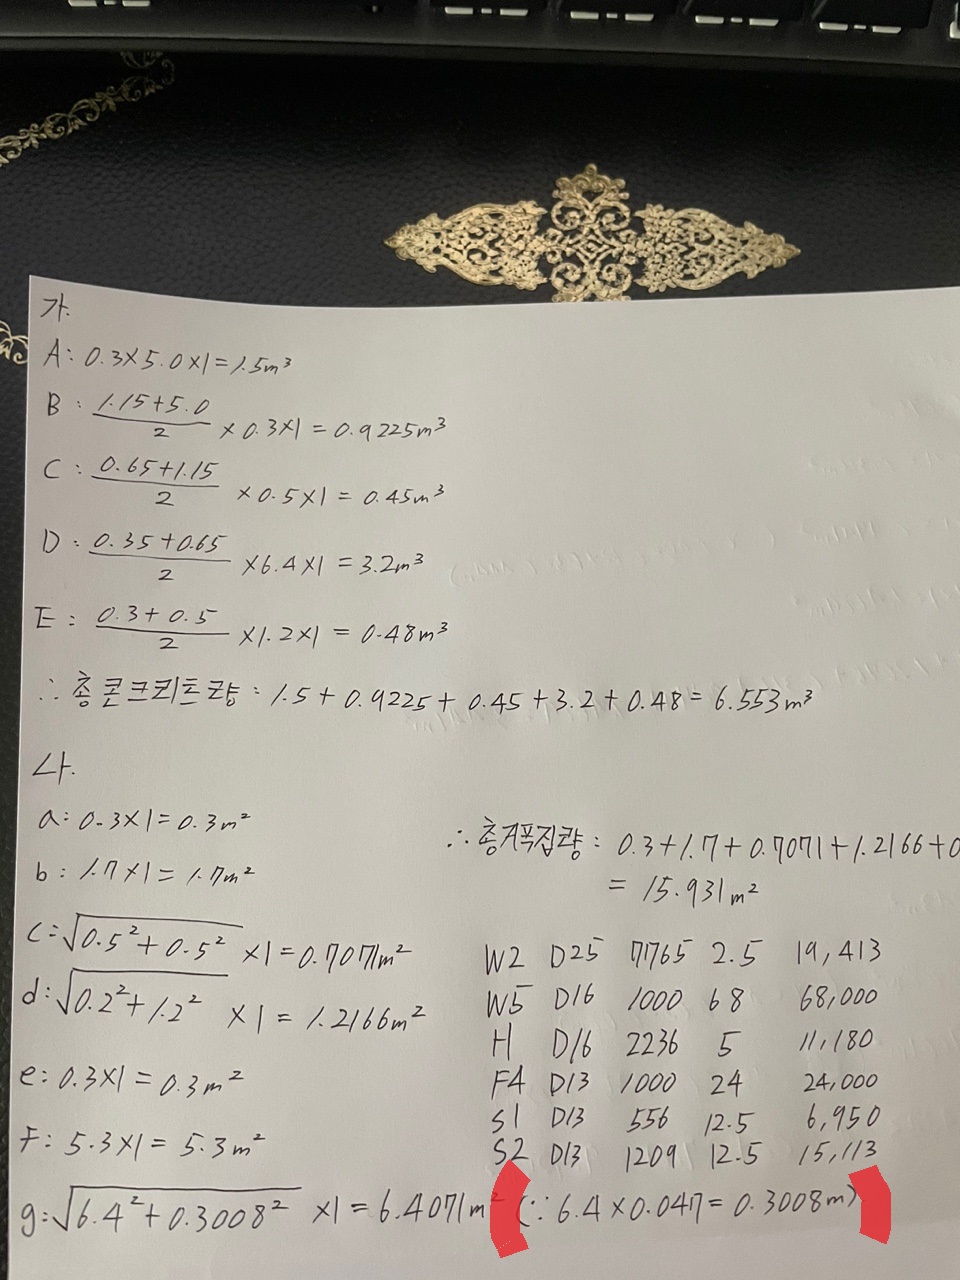 가.
A: 0.3×5.0×1=1.5m³
B: (1.15+5.0)/2 ×0.3×1=0.9225m³
C: (0.65+1.15)/2 ×0.5×1=0.45m³
D: (0.35+0.65)/2 ×6.4×1=3.2m³
E: (0.3+0.5)/2 ×1.2×1=0.48m³
∴ 총 콘크리트량: 1.5+0.9225+0.45+3.2+0.48=6.553m³
나.
a: 0.3×1=0.3m²
b: 1.7×1=1.7m²
c: √(0.5²+0.5²) ×1=0.7071m²
d: √(0.2²+1.2²) ×1=1.2166m²
e: 0.3×1=0.3m²
F: 5.3×1=5.3m²
g: √(6.4²+0.3008²) ×1=6.4071m² (∵ 6.4×0.047=0.3008m)
∴ 총거푸집량: 0.3+1.7+0.7071+1.2166+0
= 15.931m²
W2 D25 7765 2.5 19,413
W5 D16 1000 68 68,000
H D16 2236 5 11,180
F4 D13 1000 24 24,000
S1 D13 556 12.5 6,950
S2 D13 1209 12.5 15,113